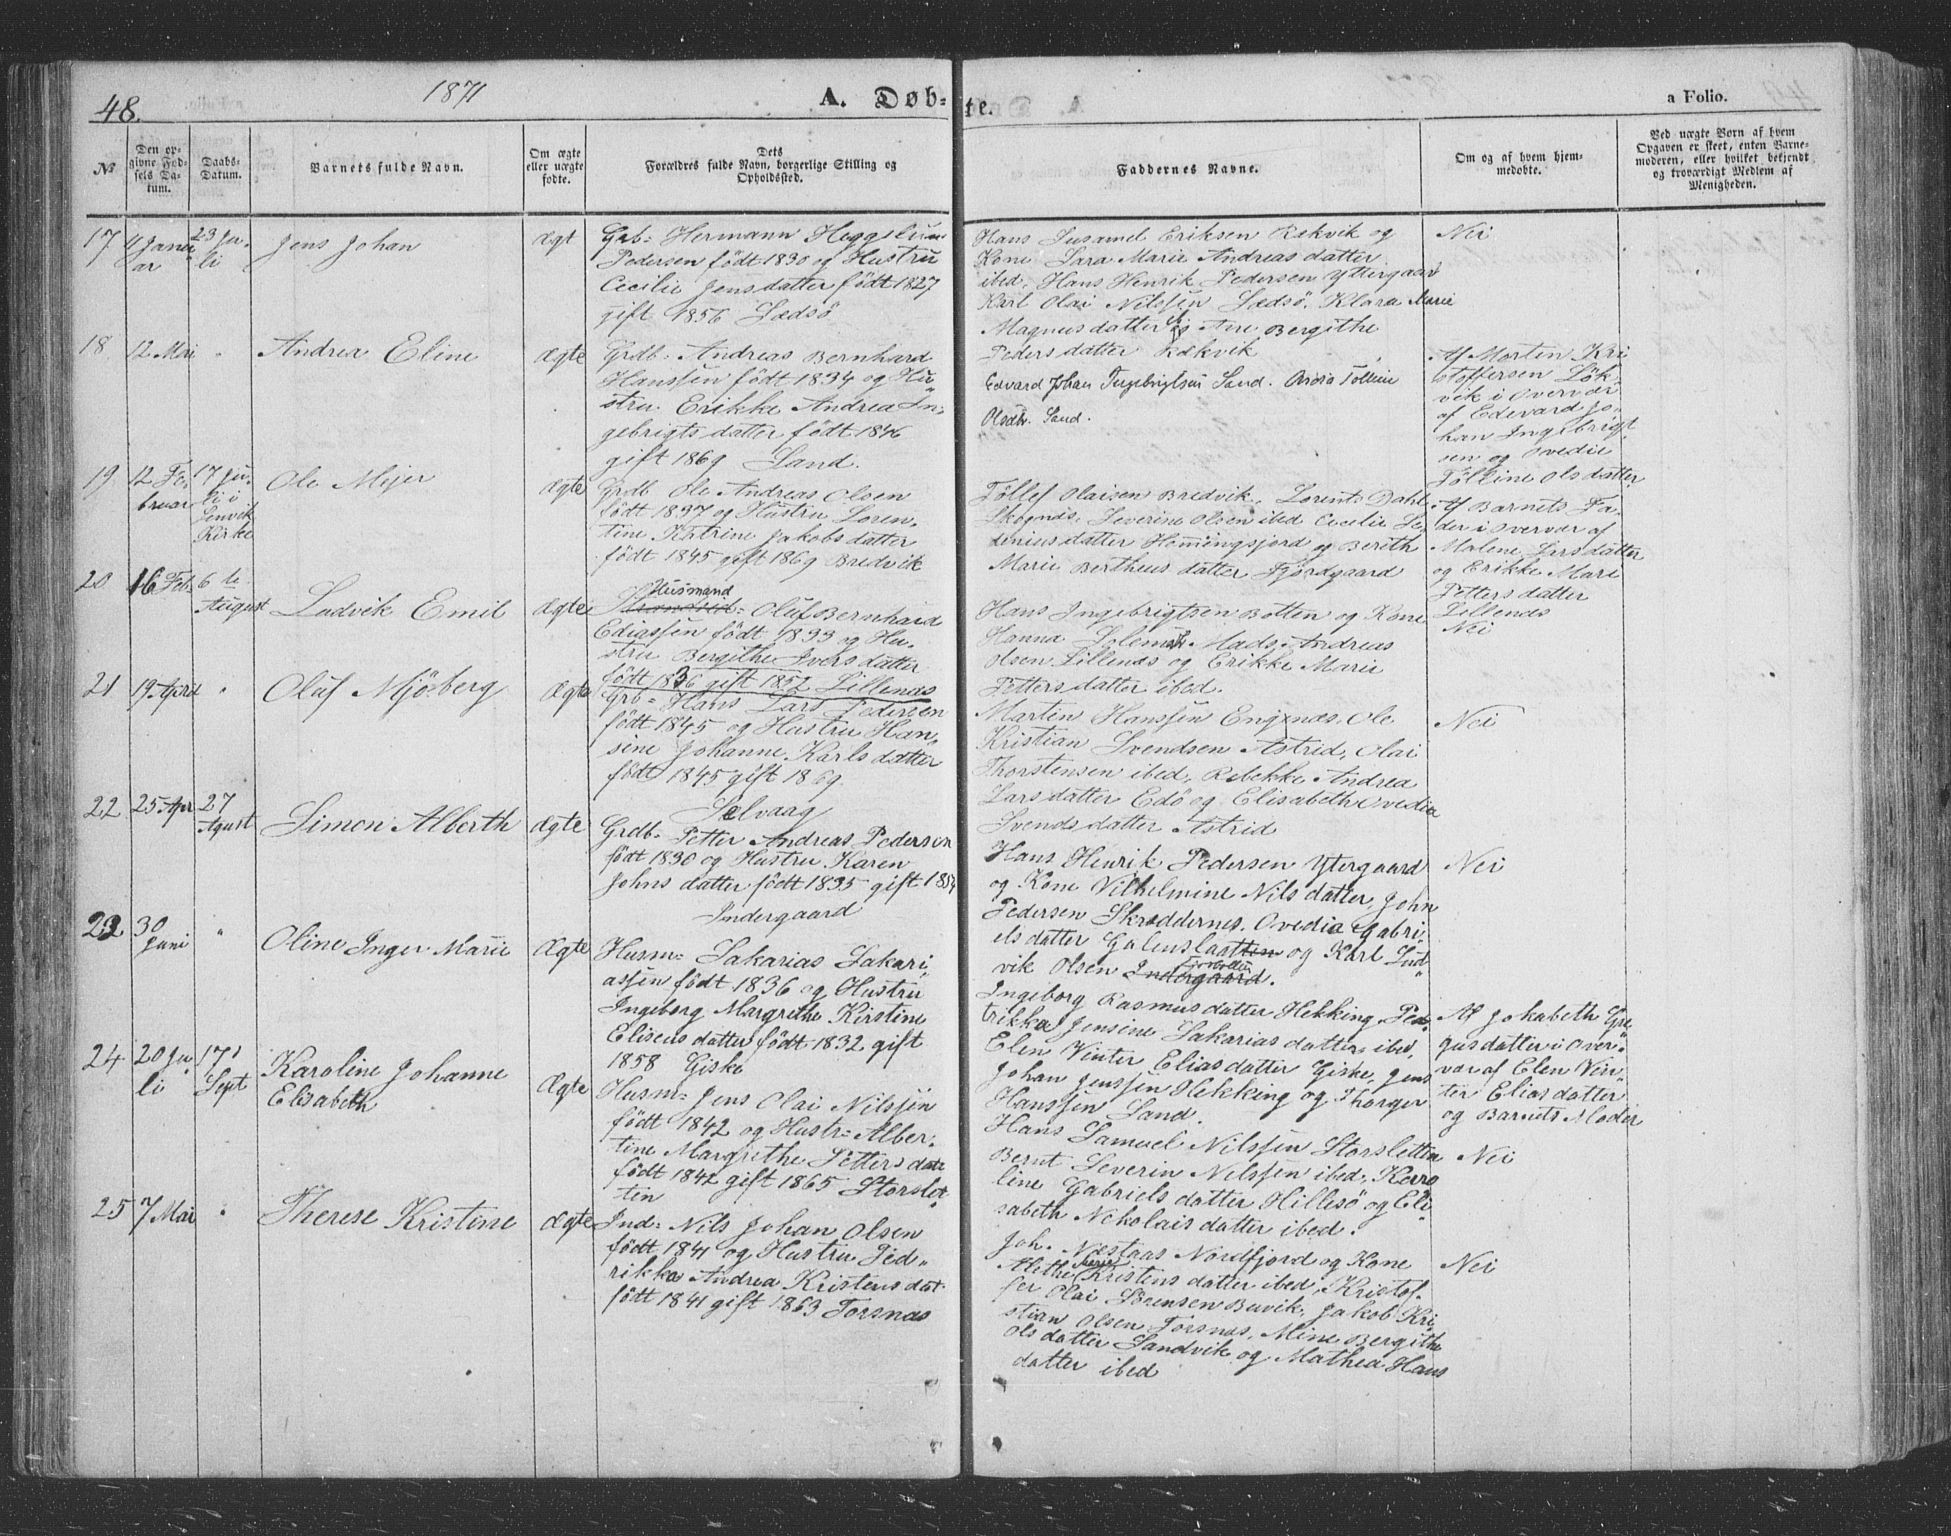 48.
1871
A. Døb-
te.
a Folio.
№
Den op-
givne Fød-
sels Da-
tum.
Daabs-
Datum.
Barnets fulde Navn.
Om ægte
eller uægte
fødte.
Dets
Forældres fulde Navn, borgerlige Stilling og
Opholdssted.
Faddernes Navne.
Om og af hvem hjem-
medøbte.
Ved uægte Børn af hvem
Opgaven er skeet, enten Barne-
moderen, eller hvilket bekjendt
og troværdigt Medlem af
Menigheden.
17
4 Janu
ar
23 Ju-
li
Jens Johan
Ægt
Hermann Heggelund
Pedersen født 1830 og Hustru
Cecilie Jensdatter født 1827
gift 1856 Lædsö
Hans Eriksen Rekvik og
Kone Sara Marie Andreas datter
ibed, Hans Henrik Pedersen Yttergaard
Karl Olai Nilssen Lædsö. Klara Marie
Magnus datter og Ane Bergithe
Peders datter Rekvik
Nei
18
12 Mai
"
Andrea Eline
Ægte
Grdb- Andreas Bernhard
Hanssen født 1834 og Hu-
stru. Erikke Andrea In-
gebrigts datter født 1846
gift 1869 Sand.
Edvard Johan Ingebrigtsen Sand. Tolline
Olsdtr. Sand.
Af Morten Kri
stoffersen Lök-
vik i Overvær
af Edevard Jo-
han Ingebrigt
sen og Ovedie
Tölline Ols datter
19
12 Fe-
bruar
17 Ju-
li i
Lenvik
Kirke
Ole Mejer
Ægte
Grdb Ole Andreas Olsen
født 1837 og Hustru Loren-
tine Katrine Jakobs datter
født 1845 gift 1869 Bredvik
Töllef Olaisen Bredvik, Lorents Dahl
Skognæs, Severine Olsen ibed Cecilie
datter og Berith
Marie Bertheus datter Fjordgaard
Af Barnets Fa-
der i Overvær af
Malene Lars datter
og Erikke Mari
Petters datter
Lillenes
20
16 Feb-
6 te
August
Ludvik Emil
Ægte
Husmand
Oluf Bernhard
Ediassen født 1833 og Hu-
stru Bergithe Ivers datter
født 1836 gift 1852 Lillenæs
Hans Ingebrigtsen Botten og Kone
Hanna Mads Andreas
Olsen Lillenæs og Erikke Marie
Petters datter ibed.
Nei
21
19 April
"
Oluf Mjösberg
Ægte
Grb- Hans Lars Pedersen
født 1845 og Hustru Han-
sine Johanne Karls datter
født 1845 gift 1869
Selvaag
Martin Hanssen Engenæs, Ole
Kristian Svendsen Astrid, Olai
Thorstensen ibed, Rebekke Andrea
Lars datter Edö og Elisabeth Ovedia
Svends datter Astrid
Nei
22
25 Apr
27
Agust
Simon Alberth
Ægte
Grdb- Petter Andreas Pedersen
født 1830 og Hustru Karen
Johns datter født 1835 gift 1854
Indergaard
Hans Henrik Pedersen Ytergaard
og Kone Vilhelmine Nils datter, John
Pedersen Skreddernes. Ovedia Gabri-
els datter og Karl Lud
vik Olsen Indergaard.
Nei
23
30
Juni
"
Oline Inger Marie
Ægte
Husm- Sakarias Sakari-
assen født 1836 og Hustru
Ingeborg Margrethe Kirstine
Eliseus datter født 1832 gift
1858 Giske
Ingeborg Rasmus datter Hekking, Ped-
rikka Jensine Sakarias datter ibed,
Elen Vinter Elias datter Giske, Jens
Johan Jenssen Hekking og Thorger
Hanssen Sand.
Af Jokabeth Gre
gus datter i Over-
vær af Elen Vin-
ter Elias datter
og Barnets Moder
24
20 Ju-
li
17
Sept
Karoline Johanne
Elisabeth
Ægte
Husm- Jens Olai Nilssen
født 1842 og Hustr- Alber-
tine Margrethe Petters datr
født 1842 gift 1865 Storslet-
tin
Hans Samuel Nilssen Storsletten
Bernt Severin Nilssen ibed, Karo
line Gabriels datter Hillesö og Eli-
sabeth Nekolais datter ibed.
Nei
25
7 Mai
"
Therese Kristine
Ægte
Ind- Nils Johan Olsen
født 1841 og Hustru Ped-
rikka Andrea Kristens dat
født 1841 gift 1863 Torsnæs
Joh. Næstaas Nordfjord og Kone
Alethe Marie Kristens datter ibed, Kristof-
fer Olai Sörensen Buvik, Jakob Kri-
stian Olsen Torsnæs, Mine Bergithe
Ols datter Sandvik og Mathea Hans
datter ibed
Nei